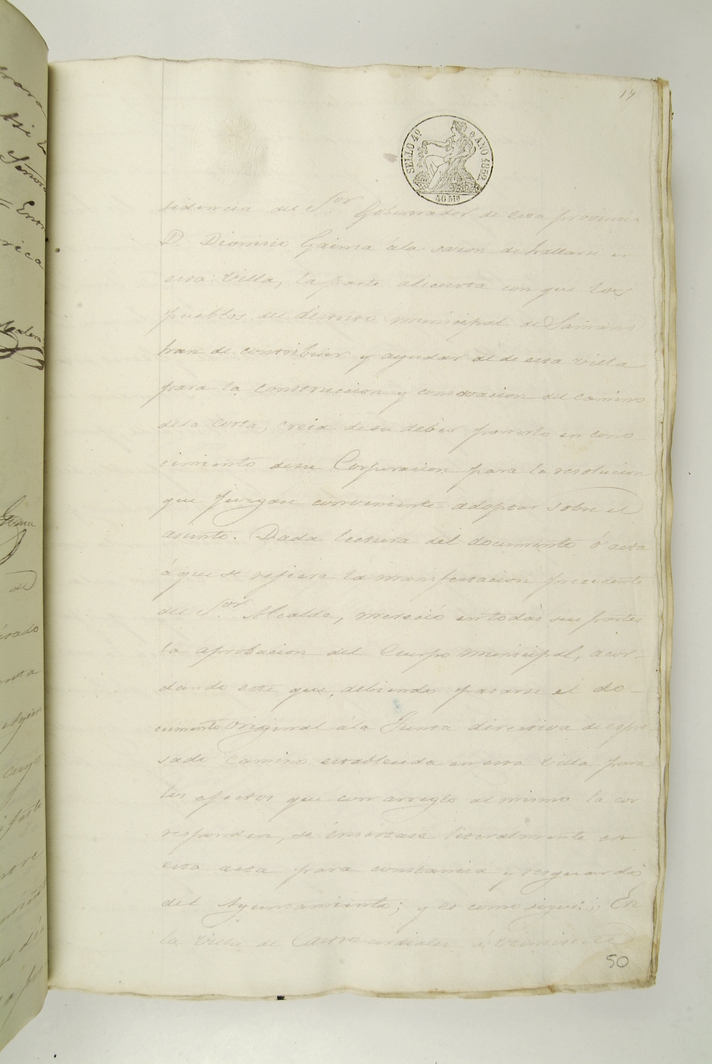 14
SELLO 4º AÑO 1852
40 Ms
sidencia del Sor Gobernador de esta provincia
D. Dionisio Gainza á la sazon de hallarse en
esta Villa, la parte alicuota con que los
pueblos del distrito municipal de Samano
han de contribuir y ayudar al de esta villa
para la construccion y conservacion del camino
de la costa, creia de su deber ponerlo en cono-
cimiento de su Corporacion para la resolucion
que juzgase conveniente adoptar sobre el
asunto. Dada lectura del documento ó acta
á que se refiere la manifestacion precedente
del Sor Alcalde, mereció en todas sus partes
la aprobacion del Cuerpo municipal, acor-
dando este que, debiendo pasarse el do-
cumento original á la Junta directiva de espre-
sado camino establecida en esta Villa para
los efectos que con arreglo al mismo la cor
responden, se insertase literalmente en
esta acta para constancia y resguardo
del Ayuntamiento; y es como sigue: En
la Villa de Castrourdiales á veinte
50